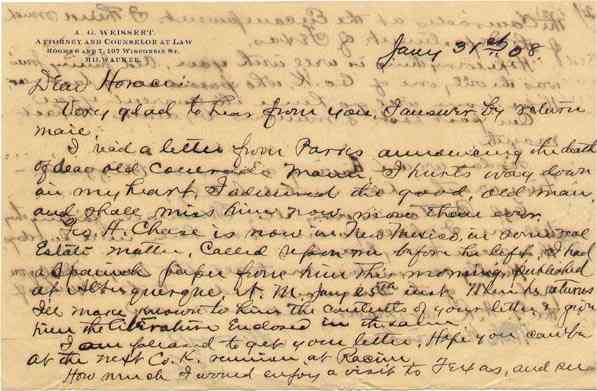 A. G. WEISSERT.
ATTORNEY AND COUNSELOR AT LAW
ROOMS 6 AND 7, 107 WISCONSIN ST.
MILWAUKEE.
Jany 31st 08.
Dear
Very glad to hear from you, I answer by return
mail.
I had a letter from Parks announcing the death
of dear old Comrade I hurts way down
in my heart, I admired the good, old man,
and shall miss him now, more than ever.
H. Chase is now in New Mexico, in
Estate matter, Called upon me before he left, I had
a Spanish paper from him this morning, published
at Albuquerque N. M. Jany 25th inst. When he returns
Ill make known to him the contents of your letter, & give
him the literature Enclosed in the same
I am pleased to get your letter. Hope you can be
at the next Co. K. reunion at Racine.
How much I would enjoy a visit to Texas, and